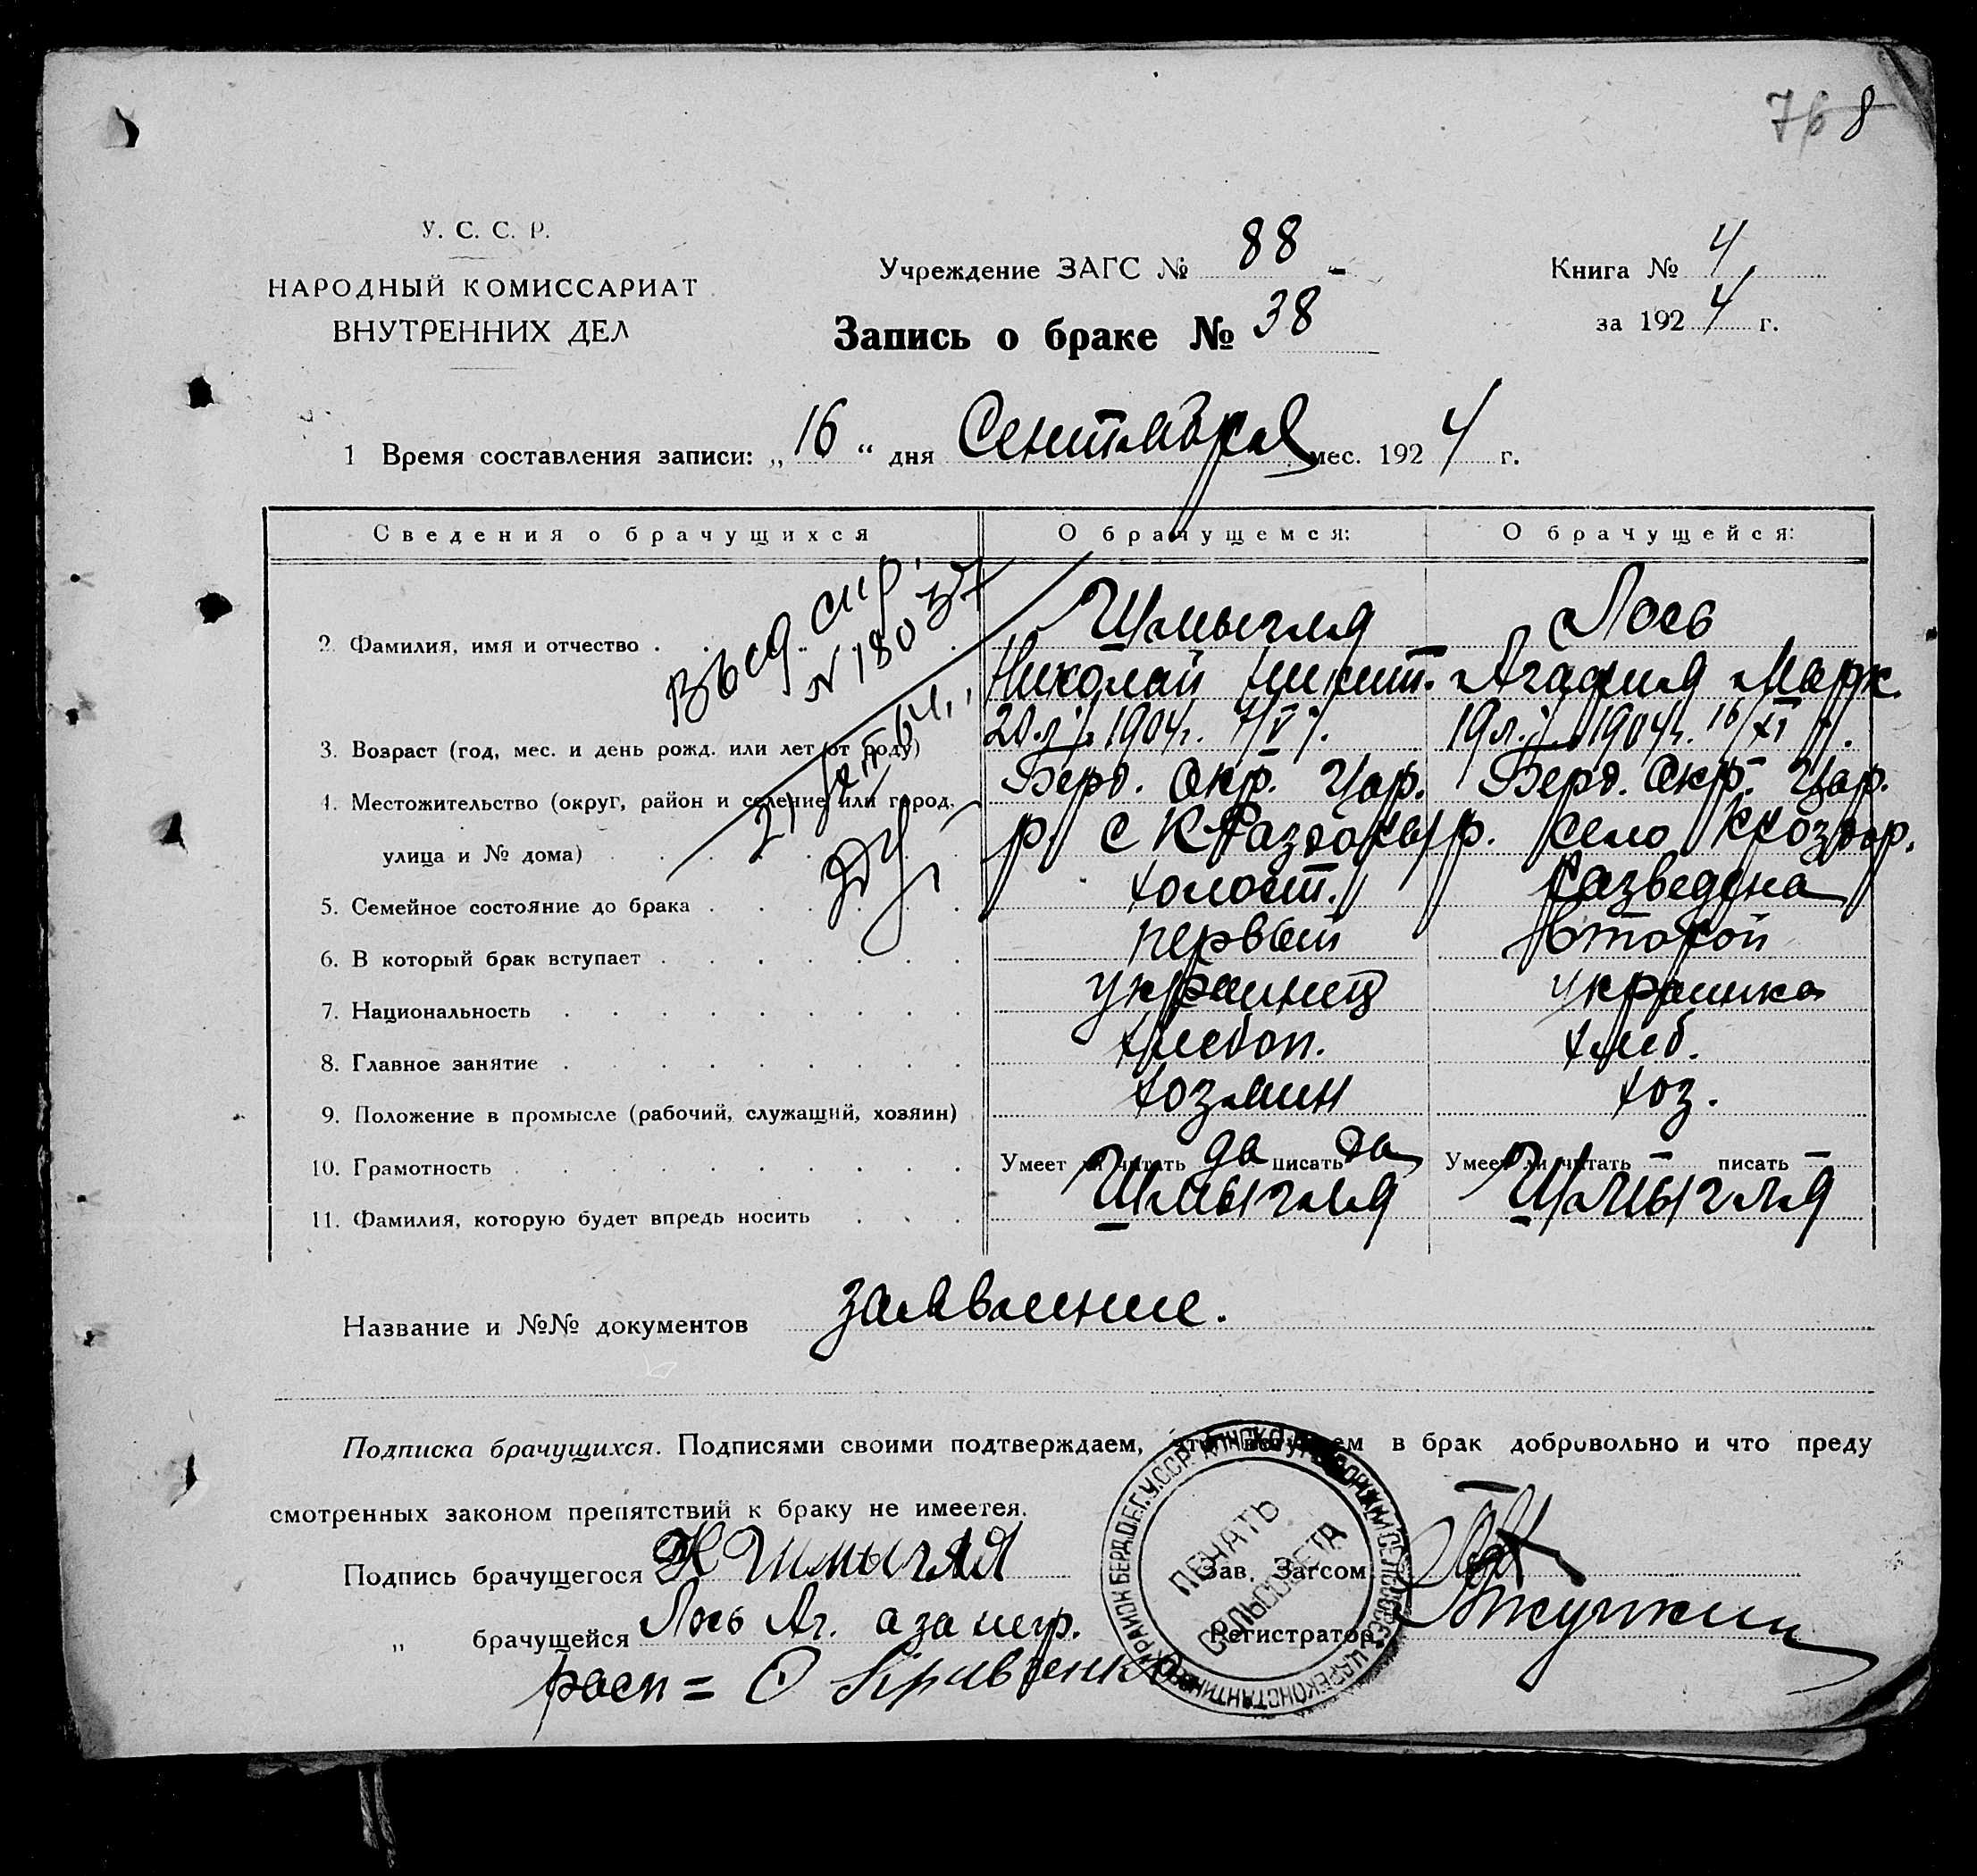 768
У. С. С. Р.
НАРОДНЫЙ КОМИССАРИАТ
ВНУТРЕННИХ ДЕЛ
Учреждение ЗАГС № 88
Запись о браке № 38
Книга № 4
за 1924 г.
1 Время составления записи: „16“ дня Сентября мес. 1924 г.
Сведения о брачущихся О брачущемся: О брачущейся:
Выд. спр.
N 180
2. Фамилия, имя и отчество Шмыгля Лось
Николай Никит. Агафия Марк.
3. Возраст (год, мес. и день рожд. или лет от роду) 20 л. 1904 г. 7/V 19 л. 1904 г. 16/XI
4. Местожительство (округ, район и селение или город, Берд. Окр. Цар. Берд. Окр. Цар.
улица и № дома) р. с К Раздоры р. село К Роздор.
5. Семейное состояние до брака холост. разведена
6. В который брак вступает первый второй
7. Национальность украинец украинка
8. Главное занятие хлебоп. хлеб.
9. Положение в промысле (рабочий, служащий, хозяин) хозяин хоз.
10. Грамотность Умеет ли читать да писать да Умеет ли читать — писать —
11. Фамилия, которую будет впредь носить Шмыгля Шмыгля
Название и №№ документов заявление.
Подписка брачущихся. Подписями своими подтверждаем, что вступаем в брак добровольно и что преду
смотренных законом препятствий к браку не имеется.
Подпись брачущегося Н Шмыгля
Зав. Загсом
„ брачущейся Лось Аг. а за негр.
Регистратор
расп = О Кравченко
ПЕЧАТЬ
СЕЛЬСОВЕТА